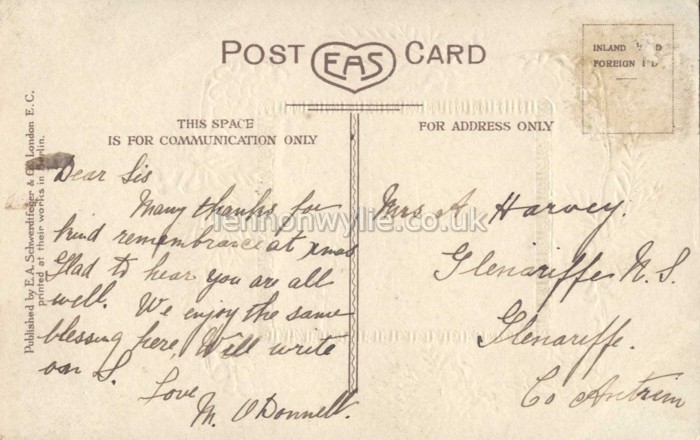 POST EAS CARD
INLAND
FOREIGN
THIS SPACE
IS FOR COMMUNICATION ONLY
FOR ADDRESS ONLY
Published by E. A. Schwerdtfeger & Co. London E. C.
printed at their works in Berlin.
Dear Sis
Many thanks for
kind remembrance at xmas
Glad to hear you are all
well. We enjoy the same
blessing here, Will write
on S.
Love
M. O'Donnell.
Mrs A Harvey.
Glenariffe N. S.
Glenariffe.
Co Antrim
lennonwylie.co.uk